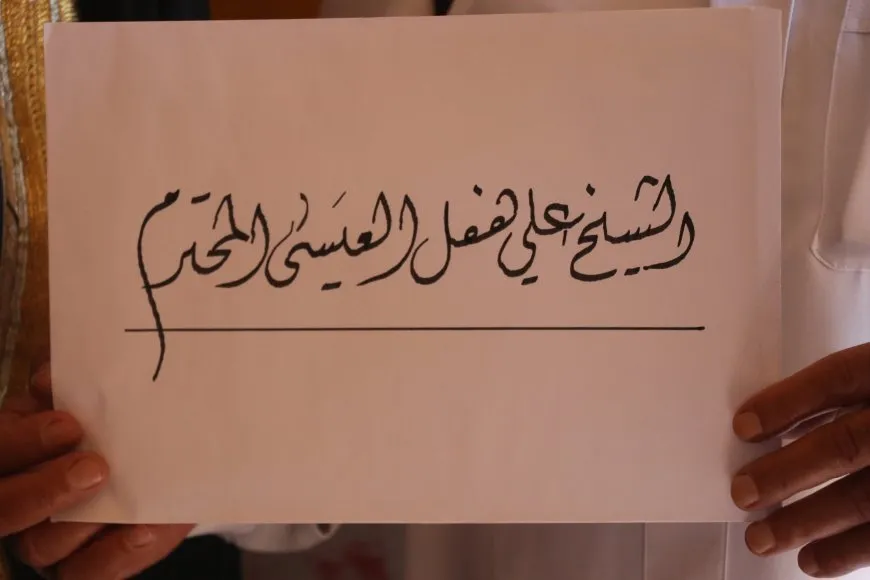 الشيخ علي هفل العيسى المحترم